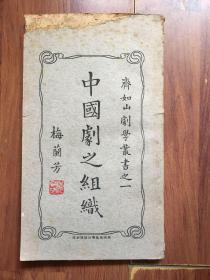 齊如山劇學叢書之一
中國劇之組織
梅蘭芳